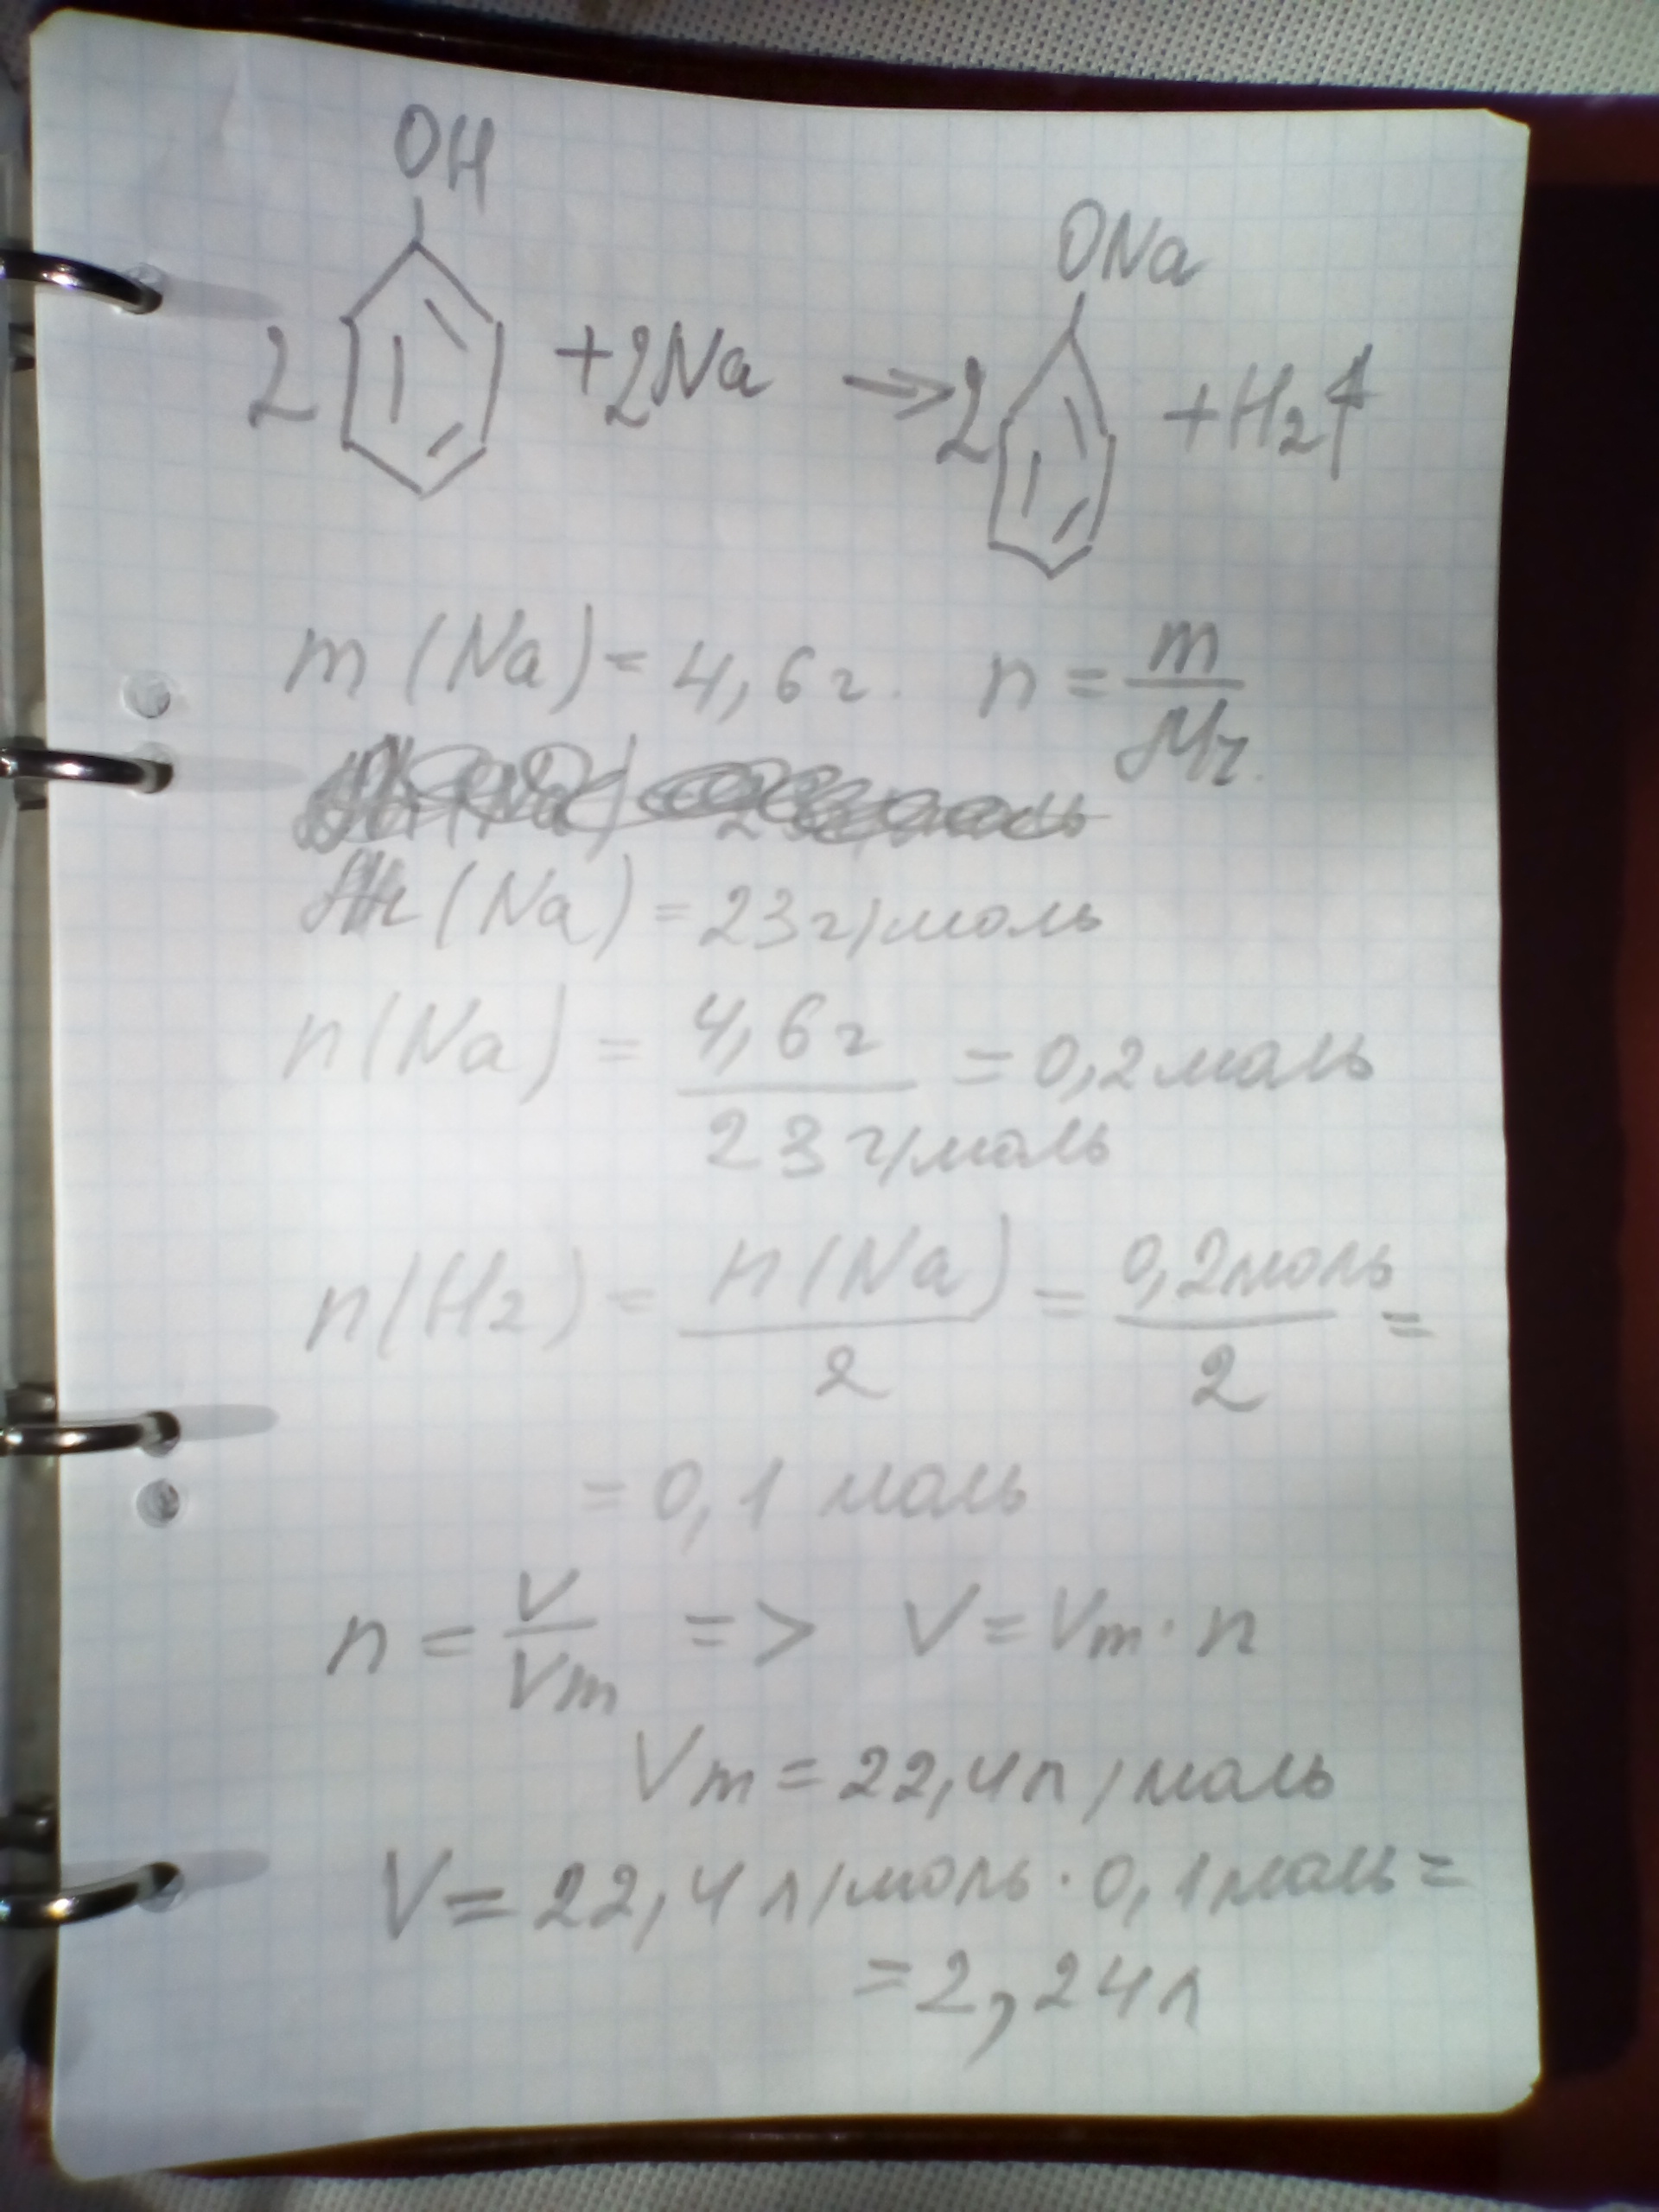 OH
ONa
2 +2Na → 2 +H2↑
m(Na)=4,6г. n=m/Mr.
(Na)=23г/моль
n(Na)=4,6г/23г/моль=0,2моль
n(H2)=n(Na)/2=0,2моль/2=
=0,1 моль
n=V/Vm => V=Vm·n
Vm=22,4л/моль
V=22,4л/моль·0,1моль=
=2,24л